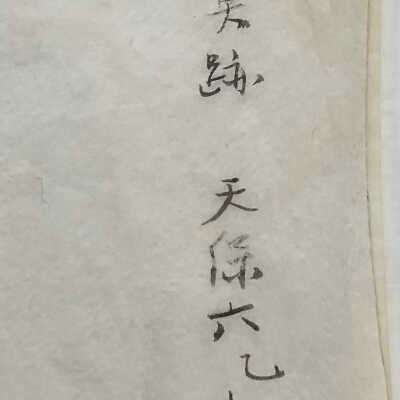 跡 天保六乙